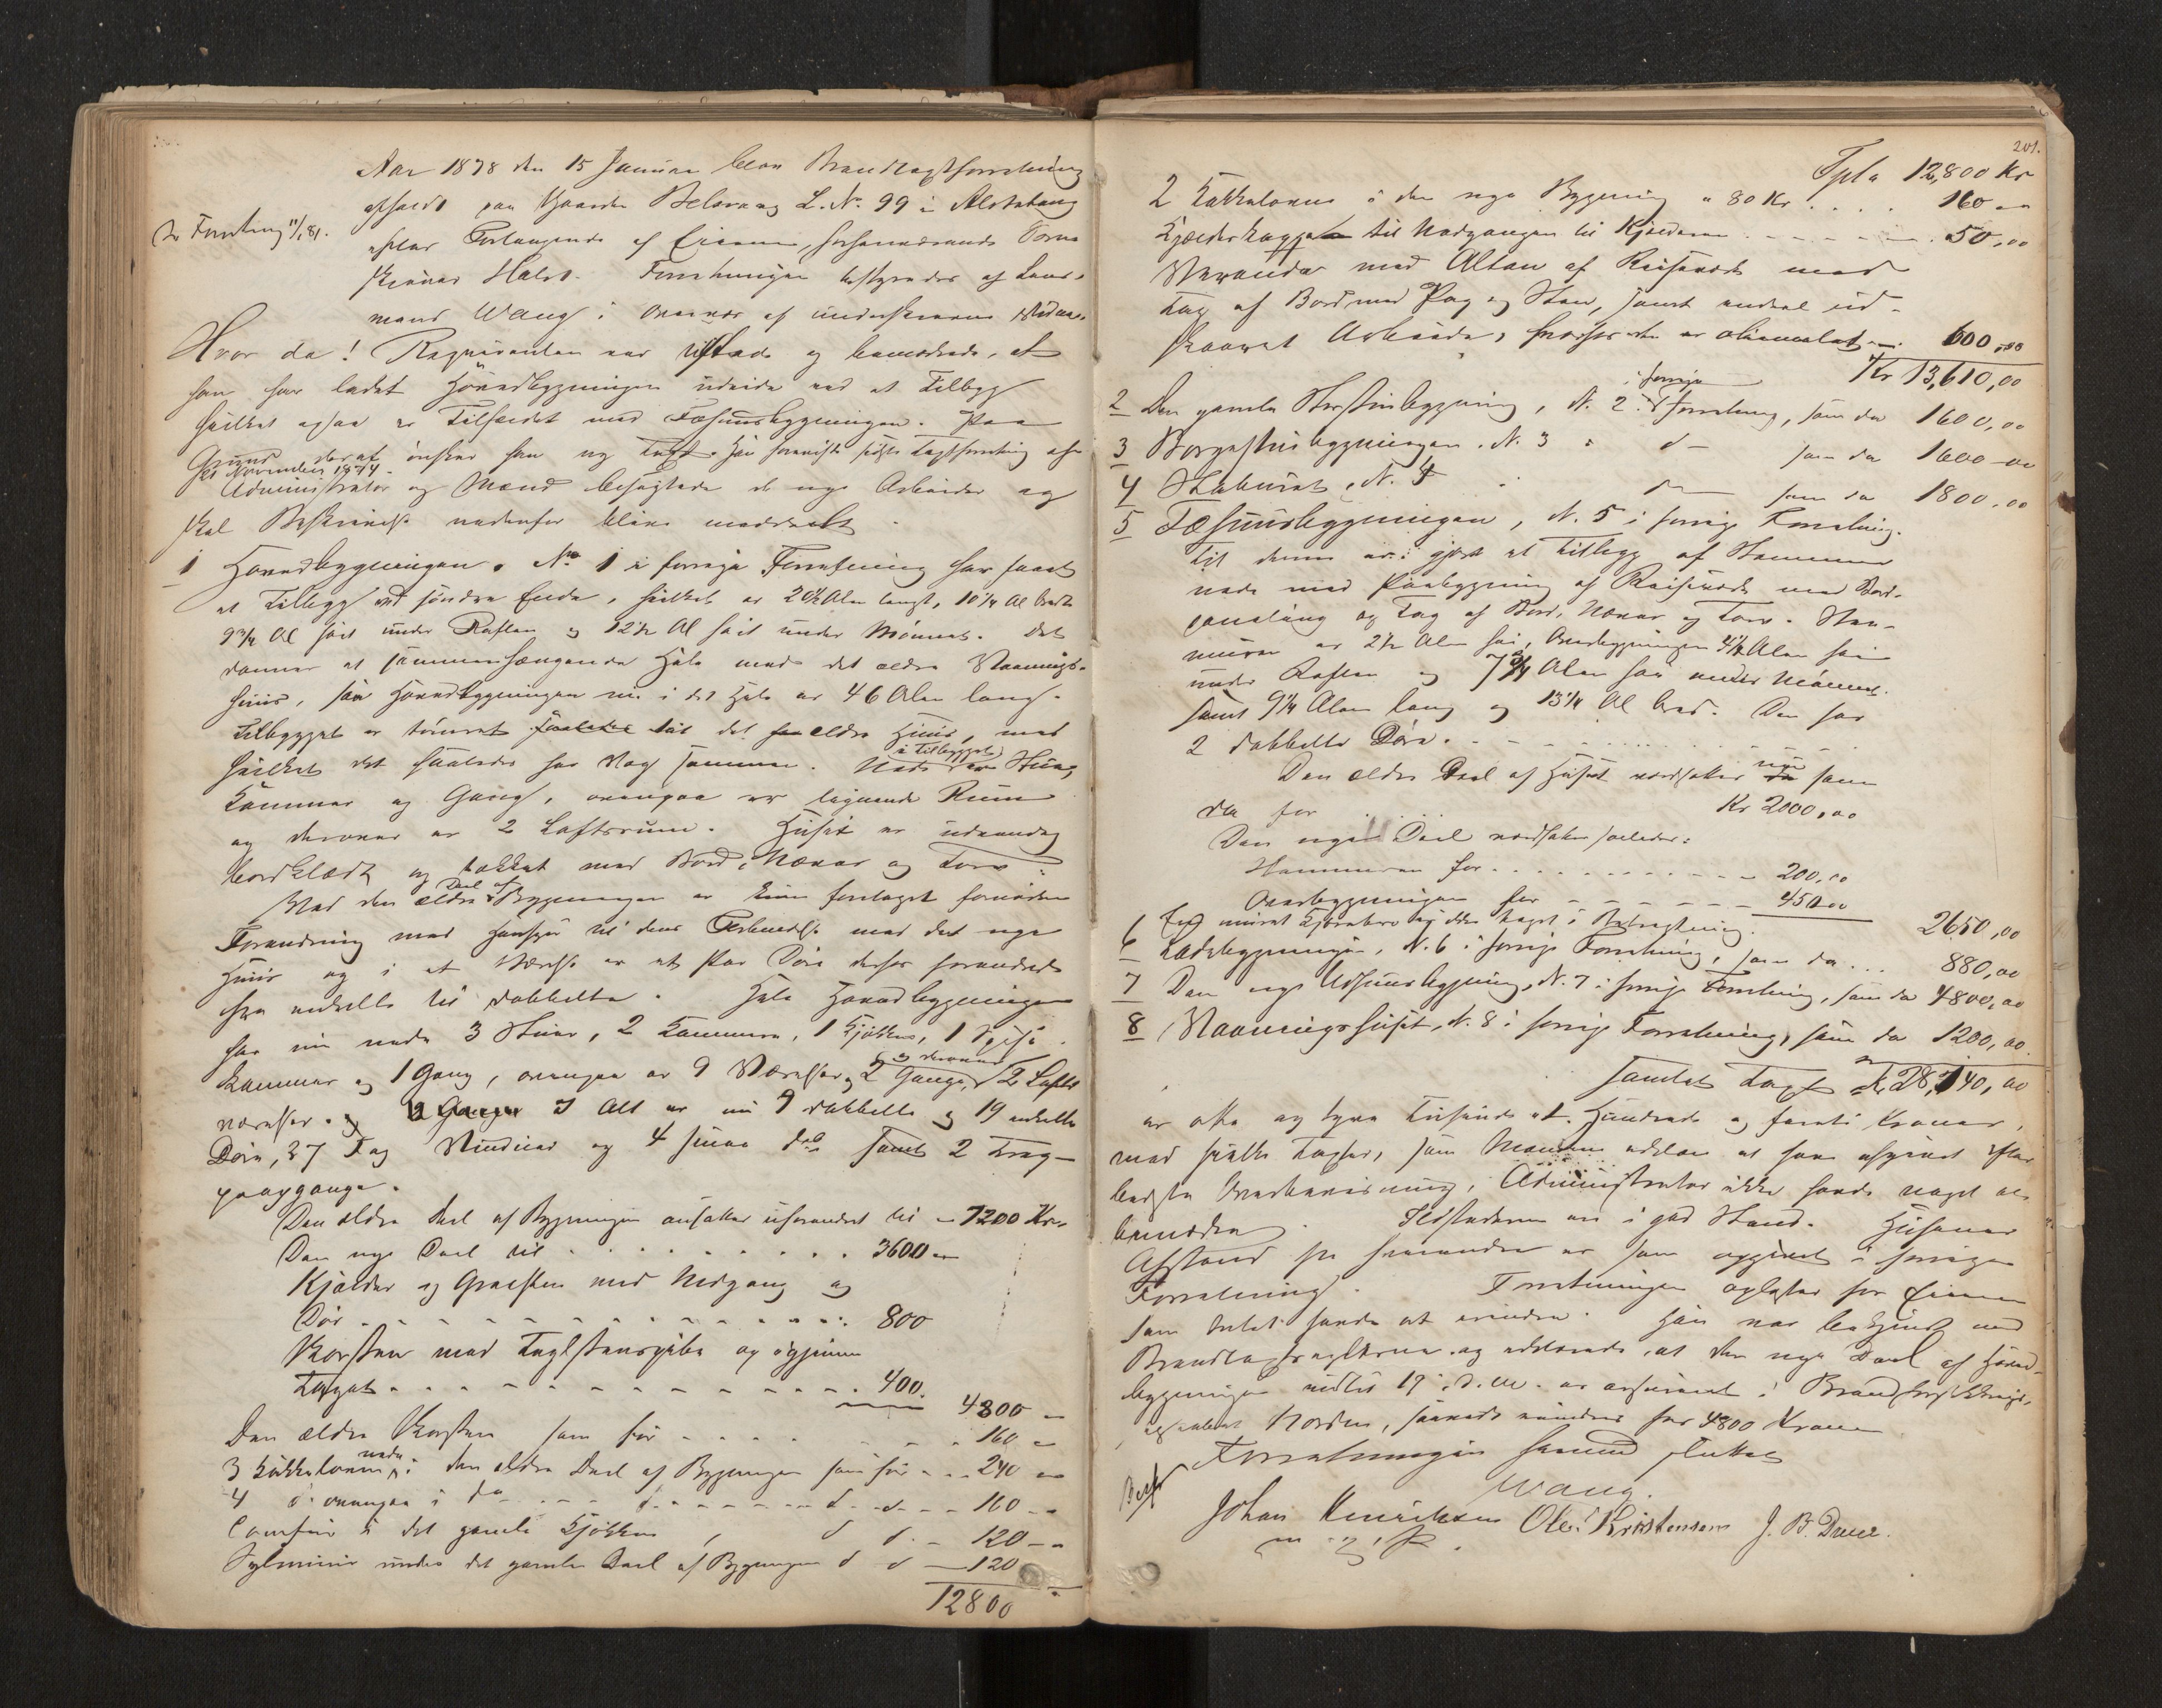 Aar 1878 den 15 Januar blev Brandtagtforretning
afholdt paa Gaarden Belsvang L. No 99 i Alstahaug
Se Forretning 11/1 81.
efter Forlangende af Eieren, forhenværende Sorenskriver
Holst. Forretningen bestyredes af Lens-
mand Wang i Overvær af underskrevne Vidner.
Hvor da! Reqvirenten var tilstede og bemærkede, at
han har ladet Hovedbygningen udvide ved et Tilbygg
hvilket ogsaa er Tilfældet med Fæhuusbygningen. Paa
Grund deraf ønsker han ny Taxt. Han foreviste sidste Taxtforretning af
1 November 1874.
Administrator og Mænd besigtede de nye Arbeider og
skal Beskrivelse nedenfor blive meddeelt
1 Hovedbygningen, No 1 i forrige Forretning har faaet
et Tilbygg ved søndre Ende, hvilket er 20½ Alen langt, 10¼ Al bredt
9¾ Al høit under Raften og 12½ Al høit under Mønnet. Det
danner et sammenhængende Hele med det ældre Vaanings-
huus, saa Hovedbygningen nu i det Hele er 46 Alen lang.
Tilbygget er tømret til det ældre Huus, med
hvilket det saaledes har Væg sammen. Nede i Tilbygget er Stue,
Kammer og Gang, ovenpaa er lignende Rum
og derover er 2 Loftsrum. Huset er udvendig
bordklædt og tækket med Bord, Næver og Torv.
Ved den ældre Deel af Bygningen er kun foretaget fornøden
Forandring med Hensyn til dens Forbindelse med det nye
Huus og i et Værelse er et Par Døre derfor forandrede
fra enkelte til dobbelte. Hele Hovedbygningen
har nu nede 3 Stuer, 2 Kammere, 1 Kjøkken, 1 Spise-
kammer og 1 Gang, ovenpaa er 9 Værelser og 2 Gange, og derover 2 Lofts
værelser. I Alt er nu 9 dobbelte og 19 enkelte
Døre, 37 Fag Vinduer og 4 smaa do samt 2 Trap-
peopgange.
Den ældre Deel af Bygningen ansættes uforandret til - 7200 Kr.
Den nye Deel til . . . . . . . . . 3600 "
Kjælder af Graasten med Nedgang og
Dør . . . . . . . . . . . 800
Skorsten med Teglstenspibe og igjennem
Taget . . . . . . . . . . . 400.
4800 "
Den ældre Skorsten som før . . . . . 160 "
3 Kakkelovne nede i den ældre Deel af Bygningen som før . . 240 "
4 do ovenpaa i do . . . d . . d . . 160 "
Comfur i det gamle Kjøkken, d d. - 120 "
Sylmuur under det gamle Deel af Bygningen d d - 120 "
12800
201.
Tpt. 12,800 Kr
2 Kakkelovne i den nye Bygning a 80 Kr . . . . 160 "
Kjælderkappe til Nedgangen til Kjælderen . . . . 50,00
Veranda med Altan af Reisverk med
Tag af Bord med Pap og Steen, samt endeel ud-
skaaret Arbeide, hvorfor den er oliemalet . . 600,00
Kr 13,610,00
2 Den gamle Storstuebygning, N. 2 i forrige Forretning, som da 1600,00
3 Borgestuebygningen, N. 3 " d - som da 1600 00
4 Stabburet, N. 4 " d - som da 1800,00
5 Fæhuusbygningen, N. 5 i forrige Forretning.
Til denne er gjort et Tilbygg af Steenmuur
nede med Paabygning af Reisverk med Bord-
panaling og Tag af Bord, Næver og Torv. Steen-
muren er 2½ Alen høi, Overbygningen 4½ Alen høi
under Raften og 7¾ Alen høi under Mønnet
samt 9¼ Alen lang og 13¼ Al bred. Den har
2 dobbelte Døre. . . . . . . . . .
Den ældre Deel af Huset værdsættes nu som
da for . . . . Kr 2000,00
Den nye Deel værdsættes saaledes:
Steenmuren for . . . . . . . . . 200,00
Overbygningen for - - - - - 450 00
2650,00
6 Ladebygningen, N. 6 i forrige Forretning, som da . . . 880,00
7 Den nye Udhuusbygning, N. 7 i forrige Forretning, som da 4800,00
8 Vaaningshuset, N. 8 i forrige Forretning, som da 1200,00
Samlet Taxt Kr 28,140,00
er otte og tyve Tusinde et Hundrede og førreti Kroner,
med hvilke Taxter, som Mændene erklære at have afgivet efter
bedste Overbeviisning, Administrator ikke havde noget at
bemærke. Ildstederne ere i god Stand. Husenes
Afstand fra hverandre er som opgivet i forrige
Forretning. Forretningen oplæstes for Eieren
som Intet havde at erindre. Han var bekjendt med
Brandtaxtreglerne og erklærede, at den nye Deel af Hoved-
bygningen indtil 19 d. M. er assureret i Brandforsikrings-
selskabet Norden, saavidt erindres for 4800 Kroner
Forretningen hermed sluttet
Wang.
Johan Henriksen Ole Kristensen J. B. Duue.
m. p. P.